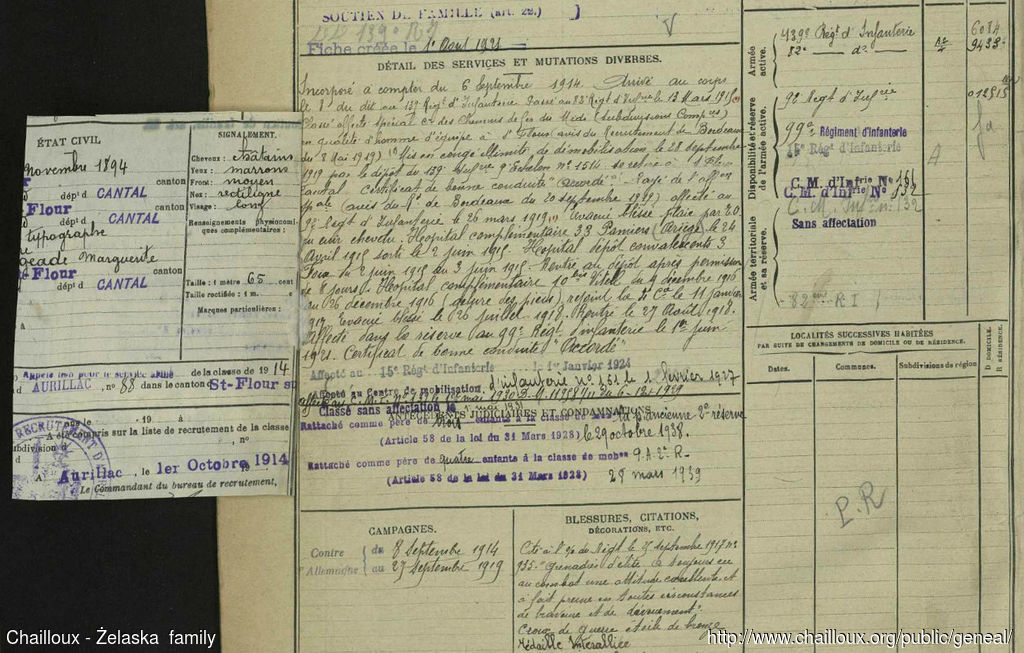 SOUTIEN DE FAMILLE (art. 22.)
Fiche créée le 1er Août 1921
DÉTAIL DES SERVICES ET MUTATIONS DIVERSES.
Incorporé à compter du 6 Septembre 1914. Arrivé au corps
le 8 du dit au 139e Régt d'Infanterie. Passé au 83e Régt d'Infrie le 13 Mars 1915
Classé affecté spécial Cie des Chemins de fer du Midi (Subdivisions Compres)
en qualité d'homme d'équipe à St Flour (avis du Recrutement de Bordeaux
du 8 Mai 1919) Mis en congé illimité de démobilisation le 28 septembre
1919 par le dépôt du 139e Infrie 9e Echelon No 1514 se retire à St Flour
Cantal Certificat de bonne conduite "Accordé"
de Bordeaux du 20 septembre 1919) affecté au
9e Régt d'Infanterie le 26 mars 1919. Evacué blessé plaie par E.O.
au cuir chevelu. Hôpital complémentaire 33 Pamiers (Ariège) le 24
Avril 1915 sorti le 2 juin 1915. Hôpital dépôt convalescents 3
Foix du 2 juin 1915 au 3 juin 1915. Rentré au dépôt après permission
de 8 jours. Hôpital complémentaire 10 Vittel du 9 décembre 1916
au 26 décembre 1916 (gelure des pieds) rejoint la 4 Cie le 11 janvier
1917. Evacué blessé le 26 juillet 1918. Rentré le 27 Août 1918.
Affecté dans la réserve au 99e Régt d'infanterie le 1er juin
1921. Certificat de bonne conduite "Accordé"
Affecté au 15e Régt d'Infanterie le 1er Janvier 1924
Affecté au Centre de mobilisation d'infanterie no 161 le 1 février 1927
Classé sans affectation le
ANTÉCÉDENTS JUDICIAIRES ET CONDAMNATIONS.
Rattaché comme père de trois enfants à la classe de ancienne 2e réserve
(Article 58 de la loi du 31 Mars 1928) le 29 octobre 1938.
Rattaché comme père de quatre enfants à la classe de mobon 9.A.2e R.
(Article 58 de la loi du 31 Mars 1928) 28 mars 1939
CAMPAGNES.
Contre l'Allemagne
du 8 Septembre 1914
au 27 Septembre 1919
BLESSURES, CITATIONS,
DÉCORATIONS, ETC.
Cité à l'O/ du Régt le 5 septembre 1917 no
955 "grenadier d'élite. a toujours eu
au combat une attitude excellente et
a fait preuve en toutes circonstances
de bravoure et de dévouement"
Croix de guerre étoile de bronze
Médaille Interalliée
ÉTAT CIVIL
novembre 1894
canton
dépt d CANTAL
Flour
dépt d CANTAL
typographe
Marguerite
Flour canton
dépt d CANTAL
SIGNALEMENT.
Cheveux : chatains
Yeux : marrons
Front : moyen
Nez : rectiligne
Visage : long
Renseignements physionomiques complémentaires :
Taille : 1 mètre 65 cent
Taille rectifiée : 1 m. c
Marques particulières :
de la classe de 1914
d AURILLAC, no 88 dans le canton St-Flour su
, le 19 à
A été compris sur la liste de recrutement de la classe
subdivision d , no
RECRUTEMENT
A Aurillac, le 1er Octobre 1914
Le Commandant du bureau de recrutement,
Armée active.
139e Régt d'Infanterie
82e do
6084
9433
Disponibilité et réserve de l'armée active.
92 Régt d'Infrie
012515
99e Régiment d'Infanterie
15e Rég d'Infanterie
A
C. M. d'Infrie No 161
C. M. d'Infrie No 132
Sans affectation
Armée territoriale et sa réserve.
82ème R I
LOCALITÉS SUCCESSIVES HABITÉES
PAR SUITE DE CHANGEMENTS DE DOMICILE OU DE RÉSIDENCE.
Dates.
Communes.
Subdivisions de région
D DOMICILE.
R RÉSIDENCE.
P.R
Chailloux - Żelaska family
http://www.chailloux.org/public/geneal/